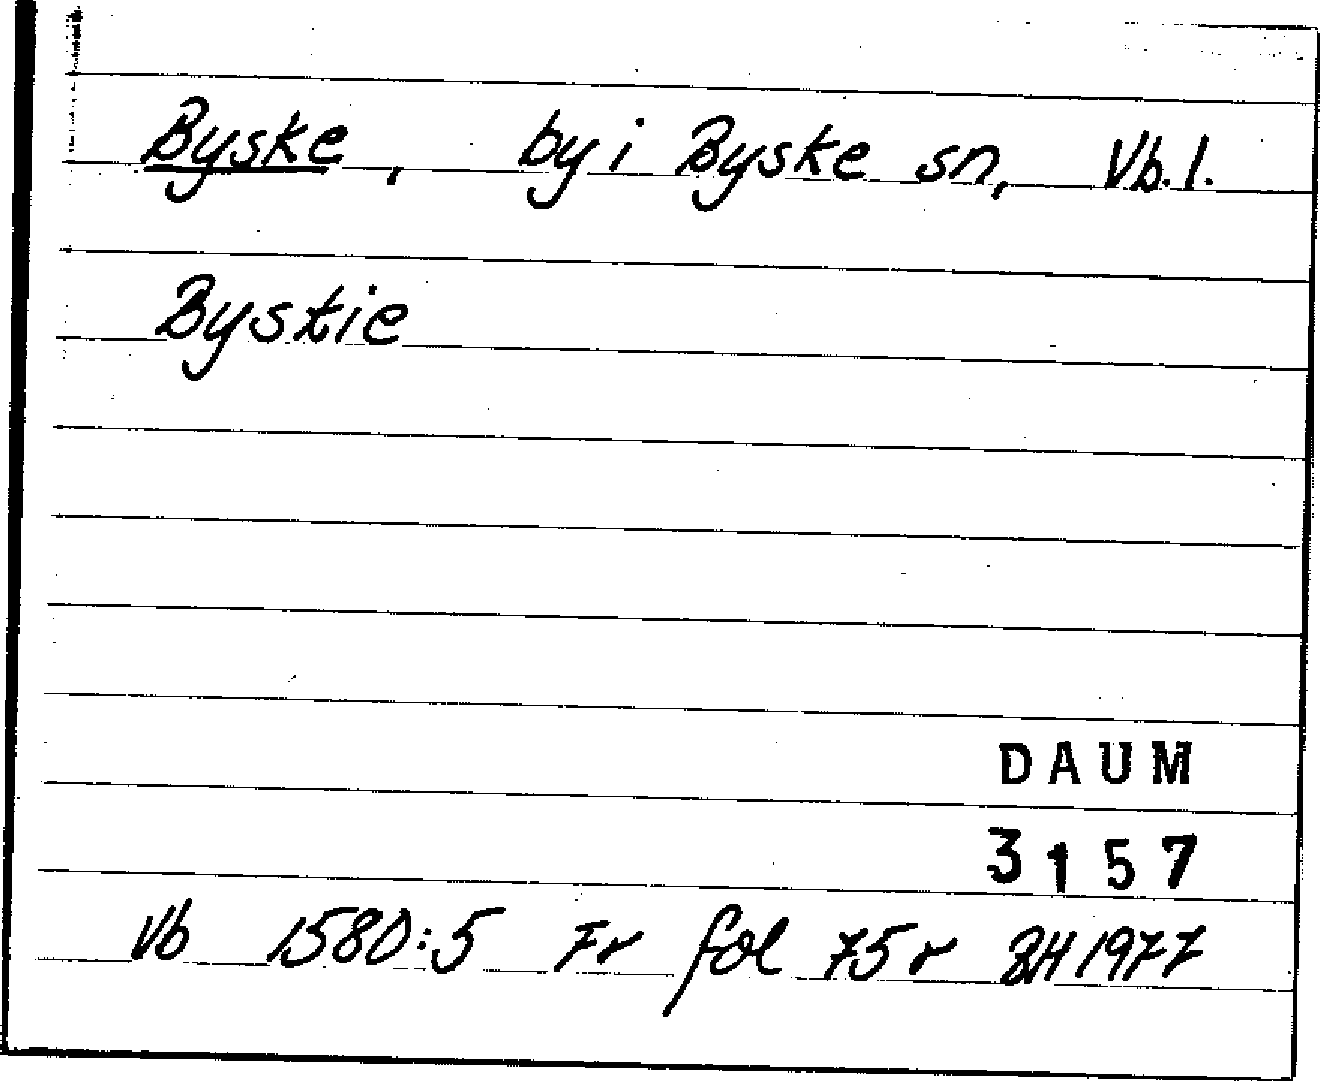 Byske, by i Byske sn, Vb.l.
Bystie
DAUM
3157
Vb 1580:5 Fr fol 75r 1977